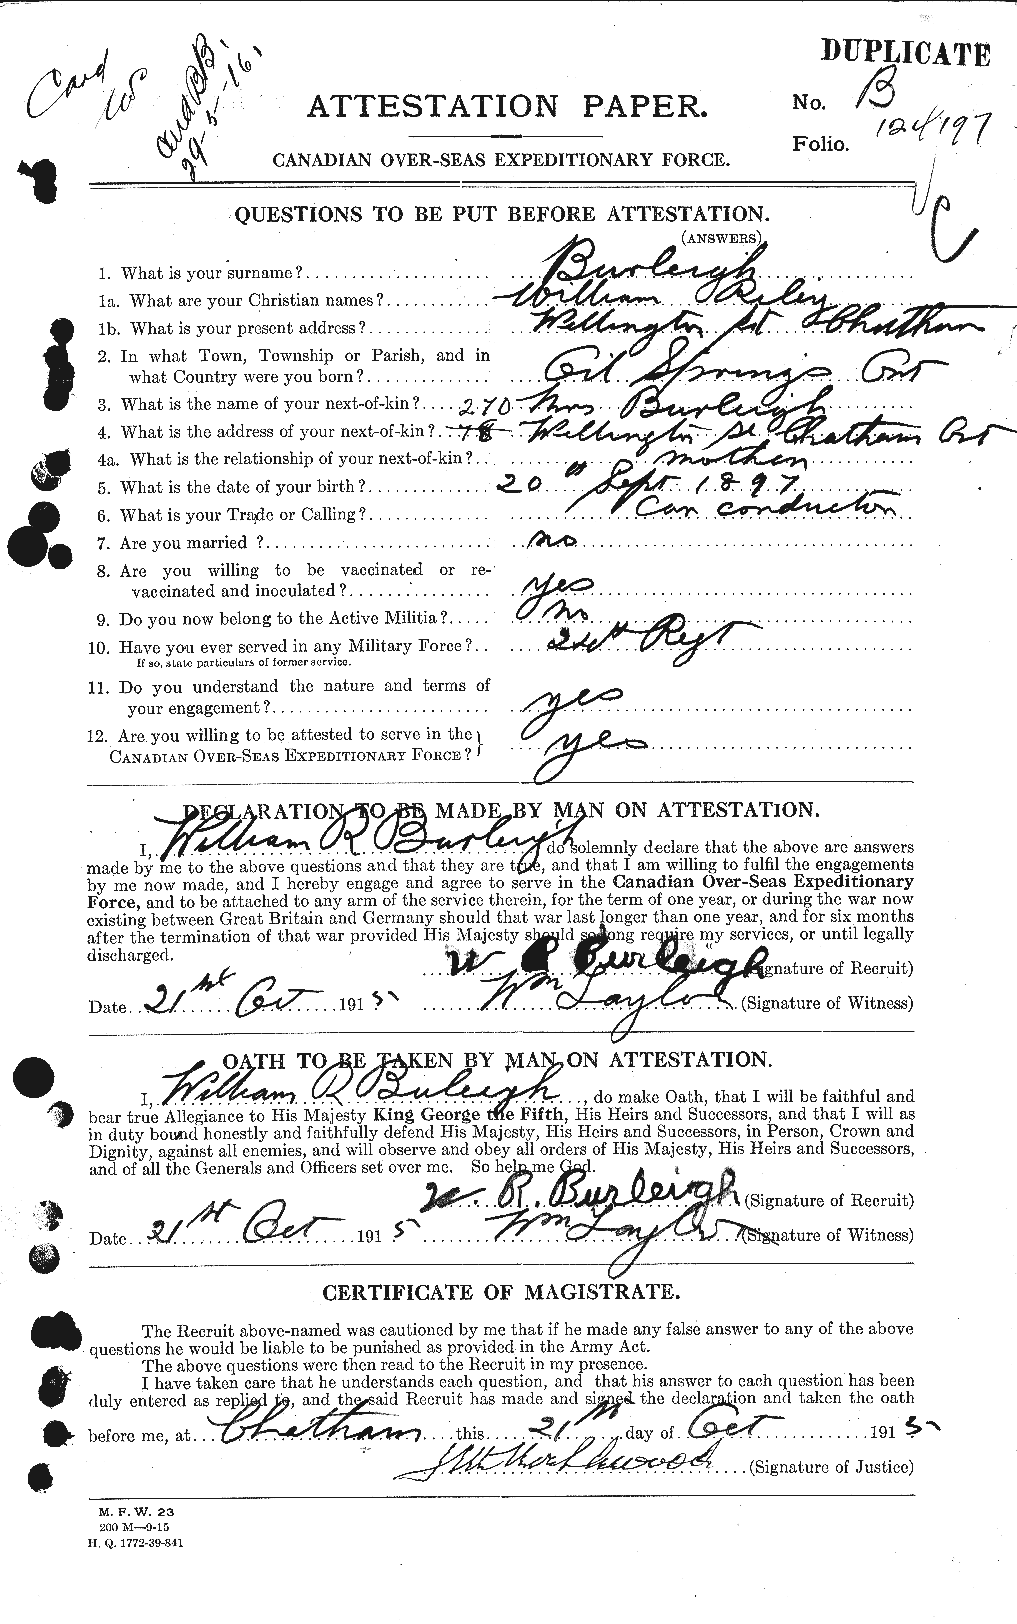 DUPLICATE
Card
29-5-16
ATTESTATION PAPER.
No. B
124197
Folio.
CANADIAN OVER-SEAS EXPEDITIONARY FORCE.
QUESTIONS TO BE PUT BEFORE ATTESTATION.
(ANSWERS)
1. What is your surname? Burleigh
1a. What are your Christian names? William Riley
1b. What is your present address? Wellington St Chatham
2. In what Town, Township or Parish, and in
what Country were you born? Oil Springs Ont
3. What is the name of your next-of-kin? 270 Mrs Burleigh
4. What is the address of your next-of-kin? 78 Wellington St. Chatham Ont
4a. What is the relationship of your next-of-kin? mother
5. What is the date of your birth? 20th Sept 1897
6. What is your Trade or Calling? Car conductor
7. Are you married ? no
8. Are you willing to be vaccinated or re-
vaccinated and inoculated? yes
9. Do you now belong to the Active Militia? no
10. Have you ever served in any Military Force? 24th Regt
If so, state particulars of former service.
11. Do you understand the nature and terms of
your engagement? yes
12. Are you willing to be attested to serve in the
CANADIAN OVER-SEAS EXPEDITIONARY FORCE? yes
DECLARATION TO BE MADE BY MAN ON ATTESTATION.
I, William R Burleigh do solemnly declare that the above are answers
made by me to the above questions and that they are true, and that I am willing to fulfil the engagements
by me now made, and I hereby engage and agree to serve in the Canadian Over-Seas Expeditionary
Force, and to be attached to any arm of the service therein, for the term of one year, or during the war now
existing between Great Britain and Germany should that war last longer than one year, and for six months
after the termination of that war provided His Majesty should so long require my services, or until legally
discharged.
W R Burleigh (Signature of Recruit)
Date 21st Oct 1915 Wm Taylor (Signature of Witness)
OATH TO BE TAKEN BY MAN ON ATTESTATION.
I, William R Buleigh, do make Oath, that I will be faithful and
bear true Allegiance to His Majesty King George the Fifth, His Heirs and Successors, and that I will as
in duty bound honestly and faithfully defend His Majesty, His Heirs and Successors, in Person, Crown and
Dignity, against all enemies, and will observe and obey all orders of His Majesty, His Heirs and Successors,
and of all the Generals and Officers set over me. So help me God.
W. R. Burleigh (Signature of Recruit)
Date 21st Oct 1915 Wm Taylor (Signature of Witness)
CERTIFICATE OF MAGISTRATE.
The Recruit above-named was cautioned by me that if he made any false answer to any of the above
questions he would be liable to be punished as provided in the Army Act.
The above questions were then read to the Recruit in my presence.
I have taken care that he understands each question, and that his answer to each question has been
duly entered as replied to, and the said Recruit has made and signed the declaration and taken the oath
before me, at Chatham this 21st day of Oct 1915
(Signature of Justice)
M. F. W. 23
200 M—9-15
H. Q. 1772-39-841